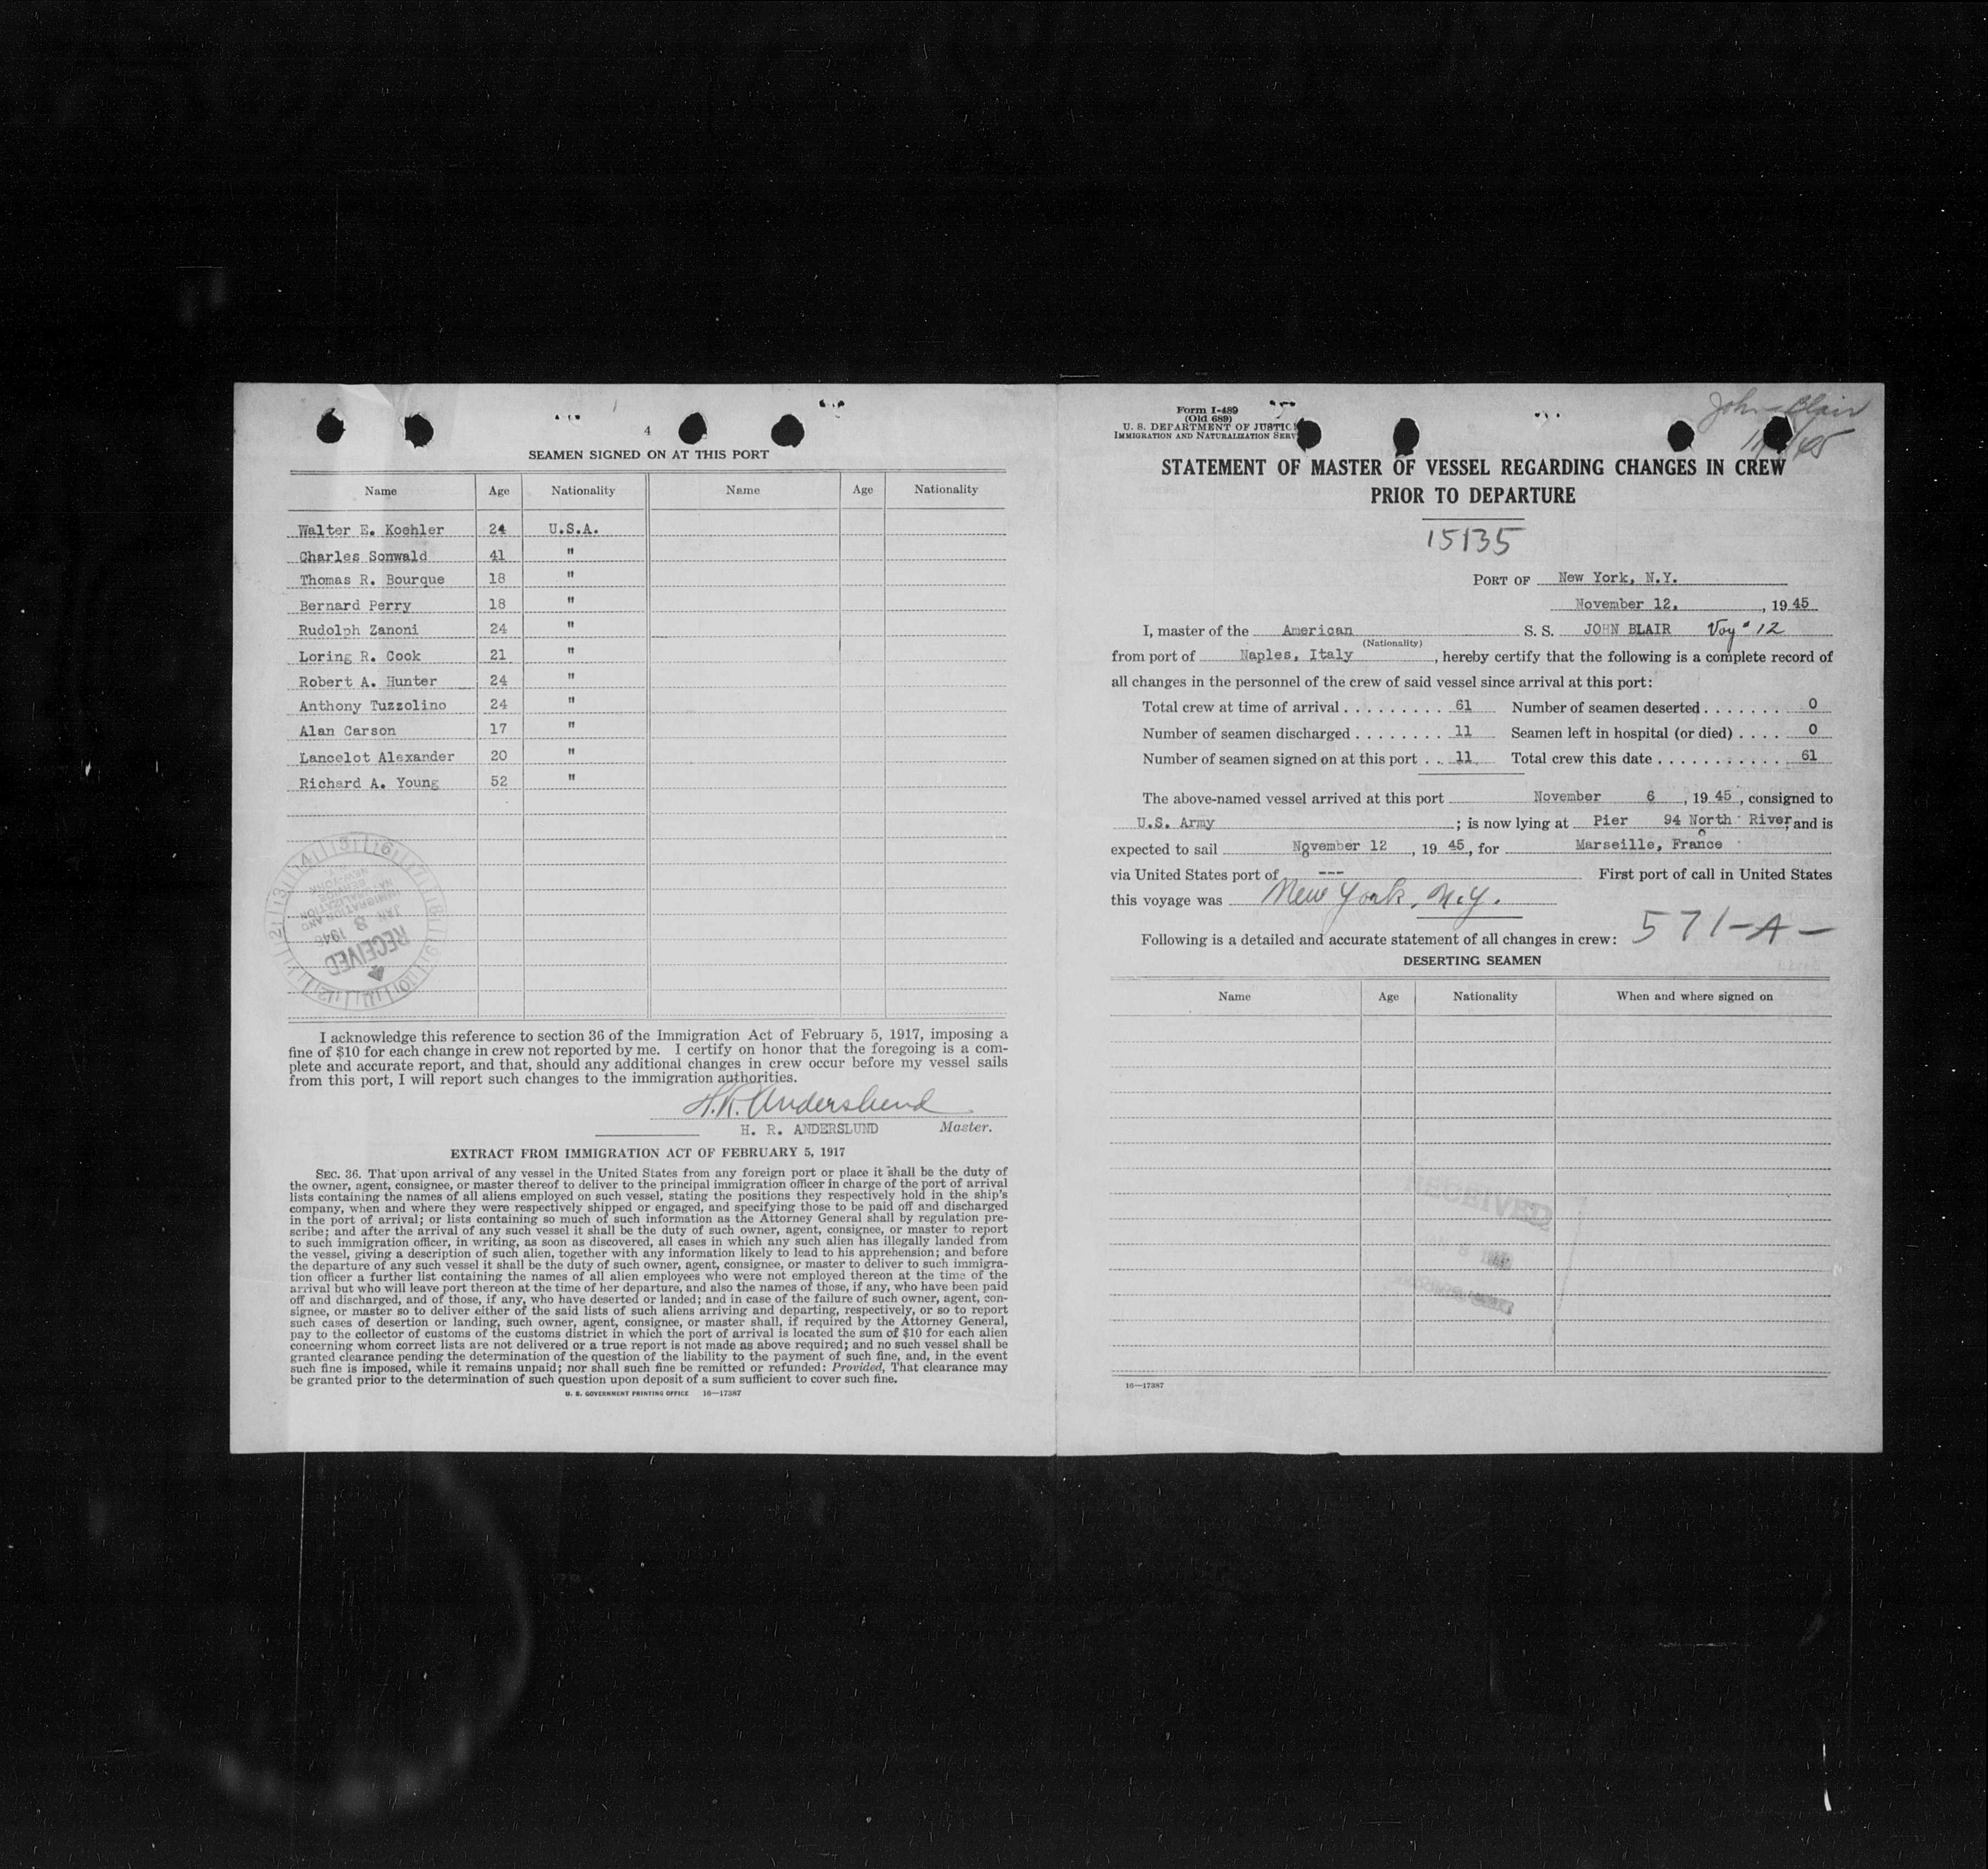 4
SEAMEN SIGNED ON AT THIS PORT
Name Age Nationality Name Age Nationality
Walter E. Koehler 24 U.S.A.
Charles Sonwald 41 "
Thomas R. Bourque 18 "
Bernard Perry 18 "
Rudolph Zanoni 24 "
Loring R. Cook 21 "
Robert A. Hunter 24 "
Anthony Tuzzolino 24 "
Alan Carson 17 "
Lancelot Alexander 20 "
Richard A. Young 52 "
RECEIVED
JAN 8 1946
IMMIGRATION AND
NATURALIZATION
SERVICE
NEW YORK
I acknowledge this reference to section 36 of the Immigration Act of February 5, 1917, imposing a
fine of $10 for each change in crew not reported by me. I certify on honor that the foregoing is a com-
plete and accurate report, and that, should any additional changes in crew occur before my vessel sails
from this port, I will report such changes to the immigration authorities.
H. R. Anderslund
H. R. ANDERSLUND Master.
EXTRACT FROM IMMIGRATION ACT OF FEBRUARY 5, 1917
SEC. 36. That upon arrival of any vessel in the United States from any foreign port or place it shall be the duty of
the owner, agent, consignee, or master thereof to deliver to the principal immigration officer in charge of the port of arrival
lists containing the names of all aliens employed on such vessel, stating the positions they respectively hold in the ship's
company, when and where they were respectively shipped or engaged, and specifying those to be paid off and discharged
in the port of arrival; or lists containing so much of such information as the Attorney General shall by regulation pre-
scribe; and after the arrival of any such vessel it shall be the duty of such owner, agent, consignee, or master to report
to such immigration officer, in writing, as soon as discovered, all cases in which any such alien has illegally landed from
the vessel, giving a description of such alien, together with any information likely to lead to his apprehension; and before
the departure of any such vessel it shall be the duty of such owner, agent, consignee, or master to deliver to such immigra-
tion officer a further list containing the names of all alien employees who were not employed thereon at the time of the
arrival but who will leave port thereon at the time of her departure, and also the names of those, if any, who have been paid
off and discharged, and of those, if any, who have deserted or landed; and in case of the failure of such owner, agent, con-
signee, or master so to deliver either of the said lists of such aliens arriving and departing, respectively, or so to report
such cases of desertion or landing, such owner, agent, consignee, or master shall, if required by the Attorney General,
pay to the collector of customs of the customs district in which the port of arrival is located the sum of $10 for each alien
concerning whom correct lists are not delivered or a true report is not made as above required; and no such vessel shall be
granted clearance pending the determination of the question of the liability to the payment of such fine, and, in the event
such fine is imposed, while it remains unpaid; nor shall such fine be remitted or refunded: Provided, That clearance may
be granted prior to the determination of such question upon deposit of a sum sufficient to cover such fine.
U. S. GOVERNMENT PRINTING OFFICE 16—17387
John Blair
Form I-489
(Old 689)
U. S. DEPARTMENT OF JUSTIC
IMMIGRATION AND NATURALIZATION SERV
STATEMENT OF MASTER OF VESSEL REGARDING CHANGES IN CREW
PRIOR TO DEPARTURE
15135
PORT OF New York, N.Y.
November 12, , 19 45
I, master of the American S. S. JOHN BLAIR Voy # 12
(Nationality)
from port of Naples, Italy , hereby certify that the following is a complete record of
all changes in the personnel of the crew of said vessel since arrival at this port:
Total crew at time of arrival . . . . . . . . . 61 Number of seamen deserted . . . . . . . 0
Number of seamen discharged . . . . . . . . 11 Seamen left in hospital (or died) . . . . 0
Number of seamen signed on at this port . . 11 Total crew this date . . . . . . . . . . . . 61
The above-named vessel arrived at this port November 6 , 19 45 , consigned to
U.S. Army ; is now lying at Pier 94 North River, and is
expected to sail November 12 , 19 45, for Marseille, France
via United States port of --- First port of call in United States
this voyage was New York, N.Y.
Following is a detailed and accurate statement of all changes in crew: 571-A-
DESERTING SEAMEN
Name Age Nationality When and where signed on
RECEIVED
16—17387